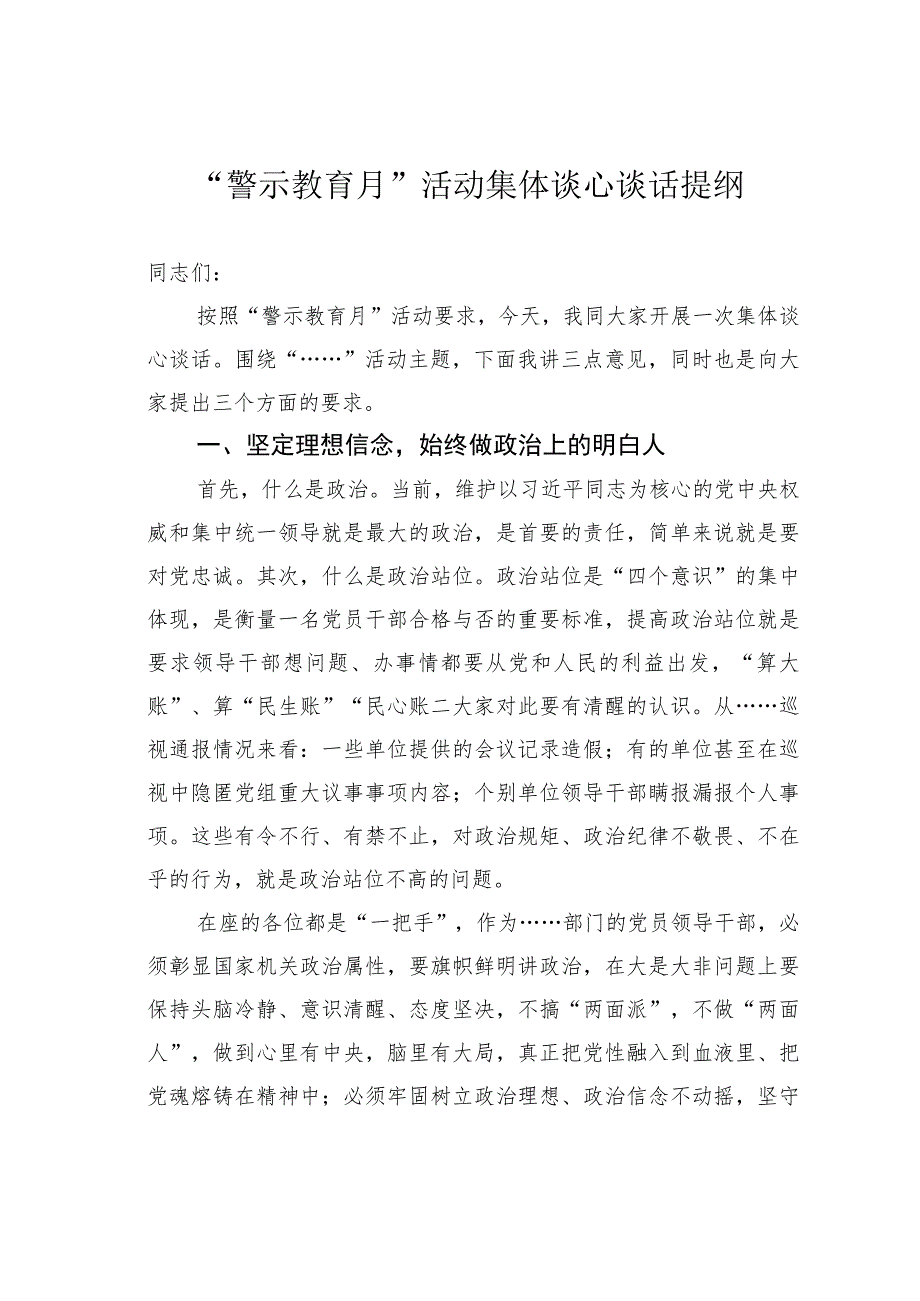 “警示教育月”活动集体谈心谈话提纲
同志们：
按照“警示教育月”活动要求，今天，我同大家开展一次集体谈
心谈话。围绕“……”活动主题，下面我讲三点意见，同时也是向大
家提出三个方面的要求。
一、坚定理想信念，始终做政治上的明白人
首先，什么是政治。当前，维护以习近平同志为核心的党中央权
威和集中统一领导就是最大的政治，是首要的责任，简单来说就是要
对党忠诚。其次，什么是政治站位。政治站位是“四个意识”的集中
体现，是衡量一名党员干部合格与否的重要标准，提高政治站位就是
要求领导干部想问题、办事情都要从党和人民的利益出发，“算大
账”、算“民生账”“民心账二大家对此要有清醒的认识。从……巡
视通报情况来看：一些单位提供的会议记录造假；有的单位甚至在巡
视中隐匿党组重大议事事项内容；个别单位领导干部瞒报漏报个人事
项。这些有令不行、有禁不止，对政治规矩、政治纪律不敬畏、不在
乎的行为，就是政治站位不高的问题。
在座的各位都是“一把手”，作为……部门的党员领导干部，必
须彰显国家机关政治属性，要旗帜鲜明讲政治，在大是大非问题上要
保持头脑冷静、意识清醒、态度坚决，不搞“两面派”，不做“两面
人”，做到心里有中央，脑里有大局，真正把党性融入到血液里、把
党魂熔铸在精神中；必须牢固树立政治理想、政治信念不动摇，坚守